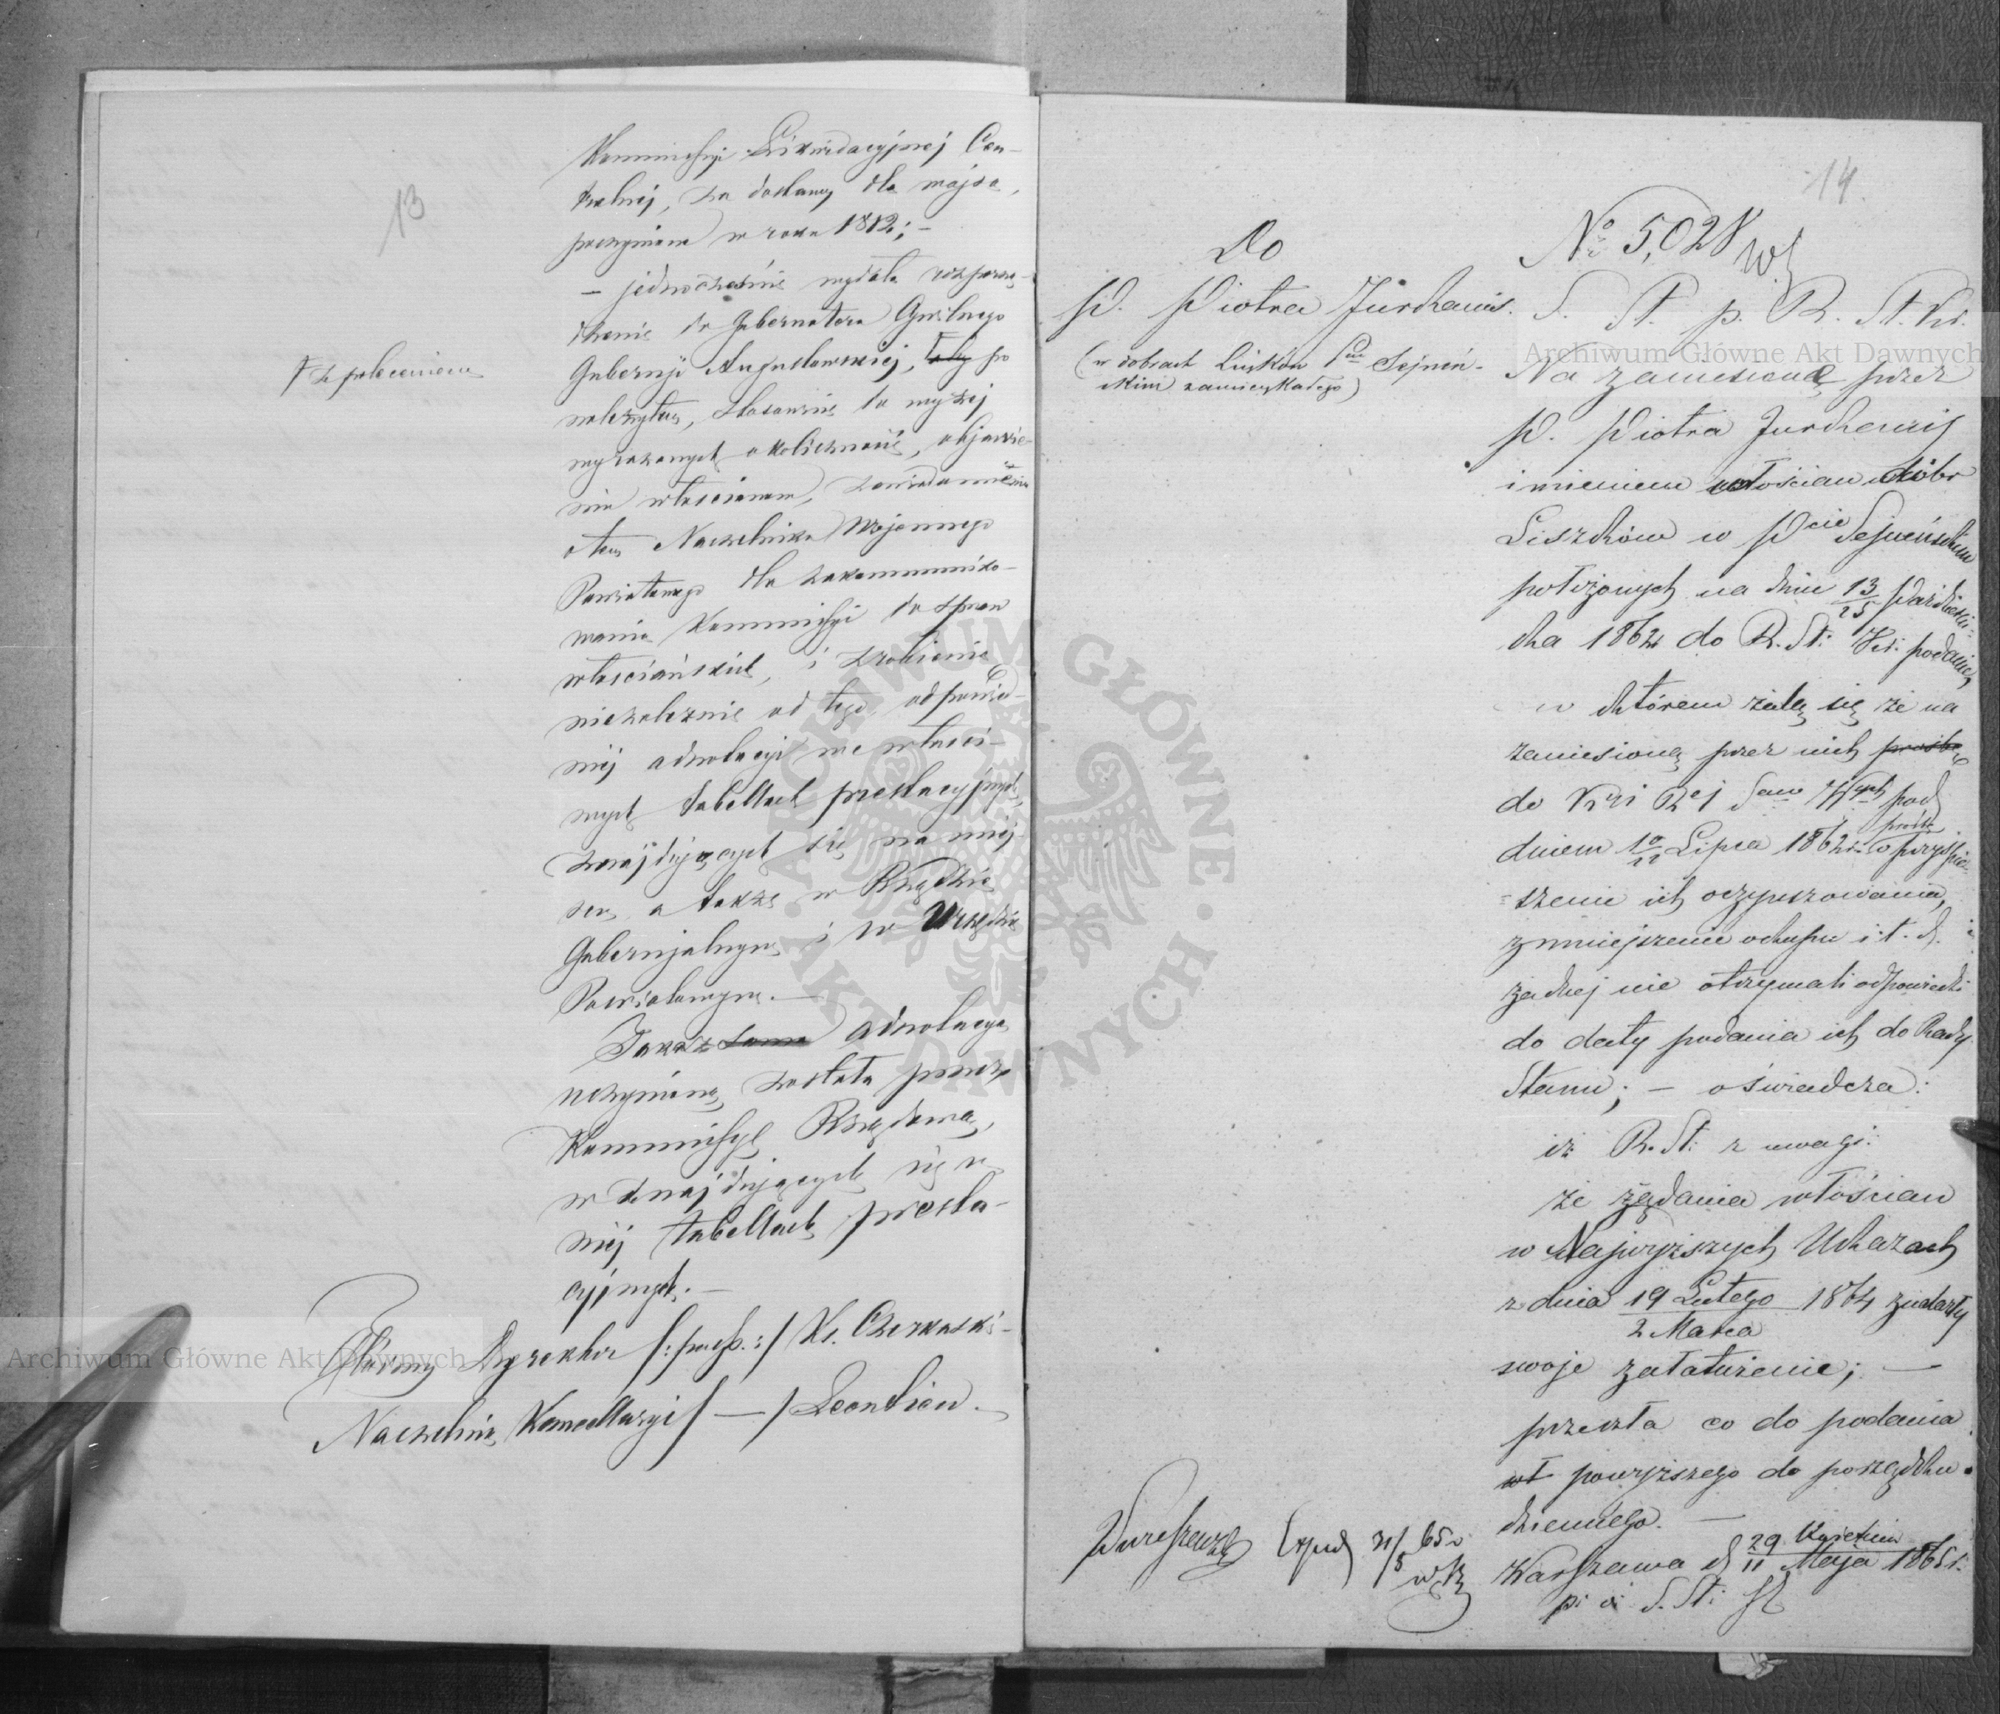 13
Kommissyi Likwidacyjnej Cen-
tralnej, za dostawy dla wojska,
poczynione w roku 1812; —
— jednocześnie wydała rozporzą-
dzenie do Gubernatora Cywilnego
Gubernji Augustowskiej, żeby po
Ŧ z poleceniem
należytem, stosownie do wyżej
wyrażonych okoliczności, objaśnie-
niu włościanom, zawiadomienia
o tem Naczelnika Wojennego
Powiatowego dla zakommuniko-
wania Kommissyi do spraw
włościańskich, i zrobienia
niezależnie od tego, odpowied-
niej adnotacyi we właści-
wych tabellach prestacyjnych,
znajdujących się na miej-
scu, a także w Rządzie
Gubernjalnym i w Urzędzie
Powiatowym. —
Takaż sama adnotacya
uczynioną została przez
Kommissyę Rządową,
w znajdujących się u
niej tabellach presta-
cyjnych. —
Główny Dyrektor /: podp. :/ Ks. Czerkaski —
Naczelnik Kancellaryi / — / Leontiew. —
14.
Do
P. Piotra Jurkanis.
(w dobrach Liszków Pcie Sejneń-
skim zamieszkałego)
№ 5,028
S. St. p. R. St. Kr.
Na zaniesione przez
P. Piotra Jurkanis
imieniem włościan dóbr
Liszków w Pcie Sejneńskim
położonych na dniu 13/25 Paździer-
ka 1862 do R. St: Kr: podanie,
w którem żalą się że na
zaniesioną przez nich prośbę
do Kssi Rej Saw Wych pod
dniem 10/22 Lipca 1862 r. prośbę o przyspie-
szenie ich oczynszowania,
zmniejszenie okupu i t. d.
żadnej nie otrzymali odpowiedzi
do daty podania ich do Rady
Stanu; — oświadcza:
iż R. St: z uwagi:
że żądania włościan
w Najwyższych Ukazach
z dnia 19 Lutego / 2 Marca 1864 znalazły
swoje załatwienie; —
przeszła co do podania
wł powyższego do porządku
dziennego. —
Warszawa d 29 Kwietnia / 11 Maja 1865 r.
p: o: S. St:
Exped 31/5 65 r
Archiwum Główne Akt Dawnych
Archiwum Główne Akt Dawnych
ARCHIWUM GŁÓWNE AKT DAWNYCH